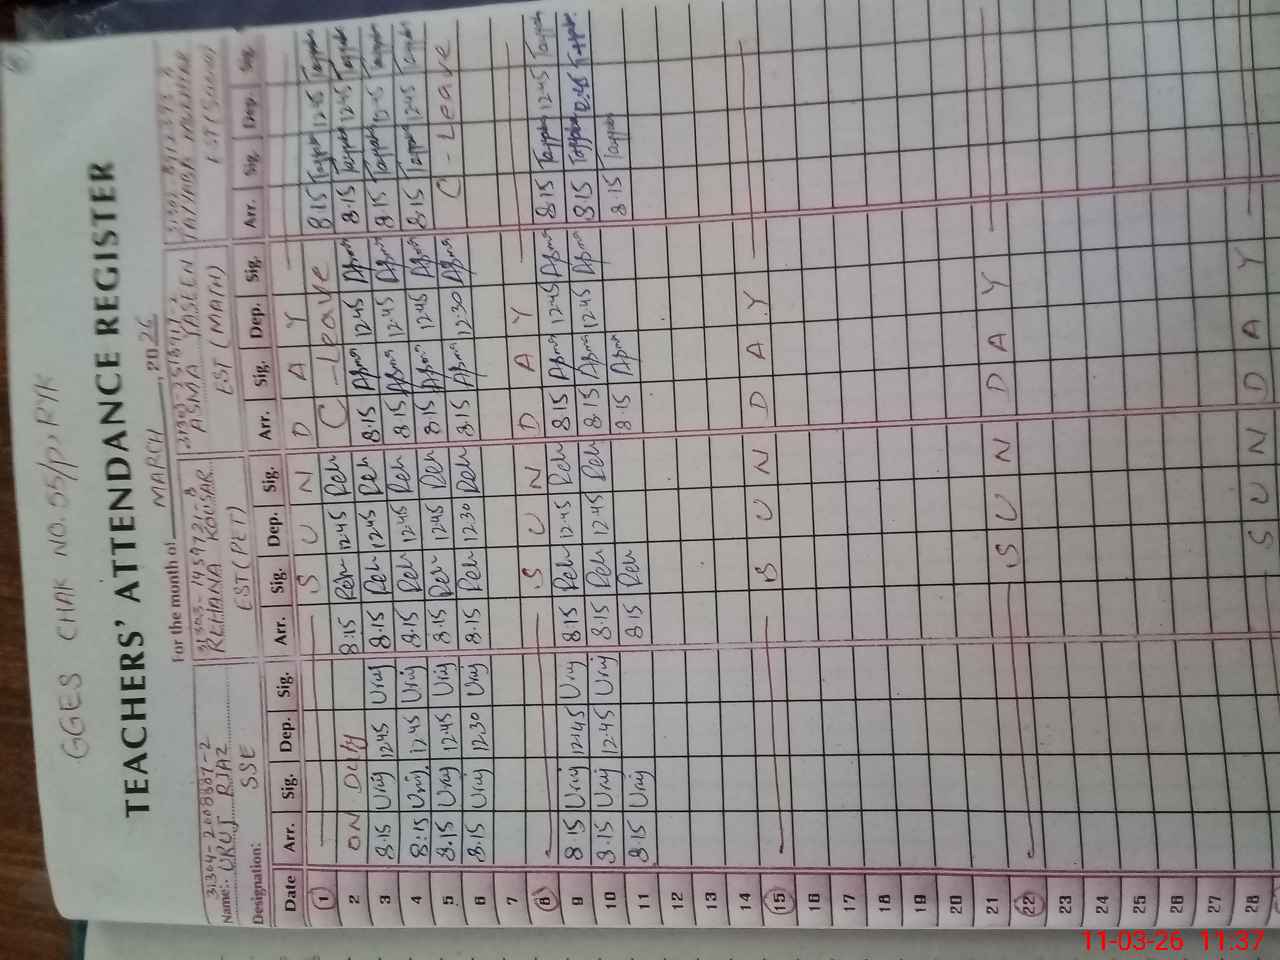 GGES CHAK NO. 55/P, RYK
TEACHERS' ATTENDANCE REGISTER
For the month of MARCH, 2026
REHANA KOUSAR ASMA YASEEN
Name:- URUJ RIAZ EST (PET) EST (MATH)
Designation: SSE
Date Arr. Sig. Dep. Sig. Arr. Sig. Dep. Sig. Arr. Sig. Dep. Sig. Arr. Sig. Dep. Sig.
1 S U N D A Y
2 ON Duty 8:15 Reh 12:45 Reh C-Leave 8:15 12:45
3 8:15 Uruj 12:45 Uruj 8:15 Reh 12:45 Reh 8:15 Asma 12:45 Asma 8:15 12:45
4 8:15 Uruj 12:45 Uruj 8:15 Reh 12:45 Reh 8:15 Asma 12:45 Asma 8:15 12:45
5 8:15 Uruj 12:45 Uruj 8:15 Reh 12:45 Reh 8:15 Asma 12:45 Asma 8:15 12:45
6 8:15 Uruj 12:30 Uruj 8:15 Reh 12:30 Reh 8:15 Asma 12:30 Asma C-Leave
7
8 S U N D A Y
9 8:15 Uruj 12:45 Uruj 8:15 Reh 12:45 Reh 8:15 Asma 12:45 Asma 8:15 12:45
10 8:15 Uruj 12:45 Uruj 8:15 Reh 12:45 Reh 8:15 Asma 12:45 Asma 8:15
11 8:15 Uruj 8:15 Reh 8:15 Asma 8:15
12
13
14
15 S U N D A Y
16
17
18
19
20
21
22 S U N D A Y
23
24
25
26
27
28 S U N D A Y
11-03-26 11:37